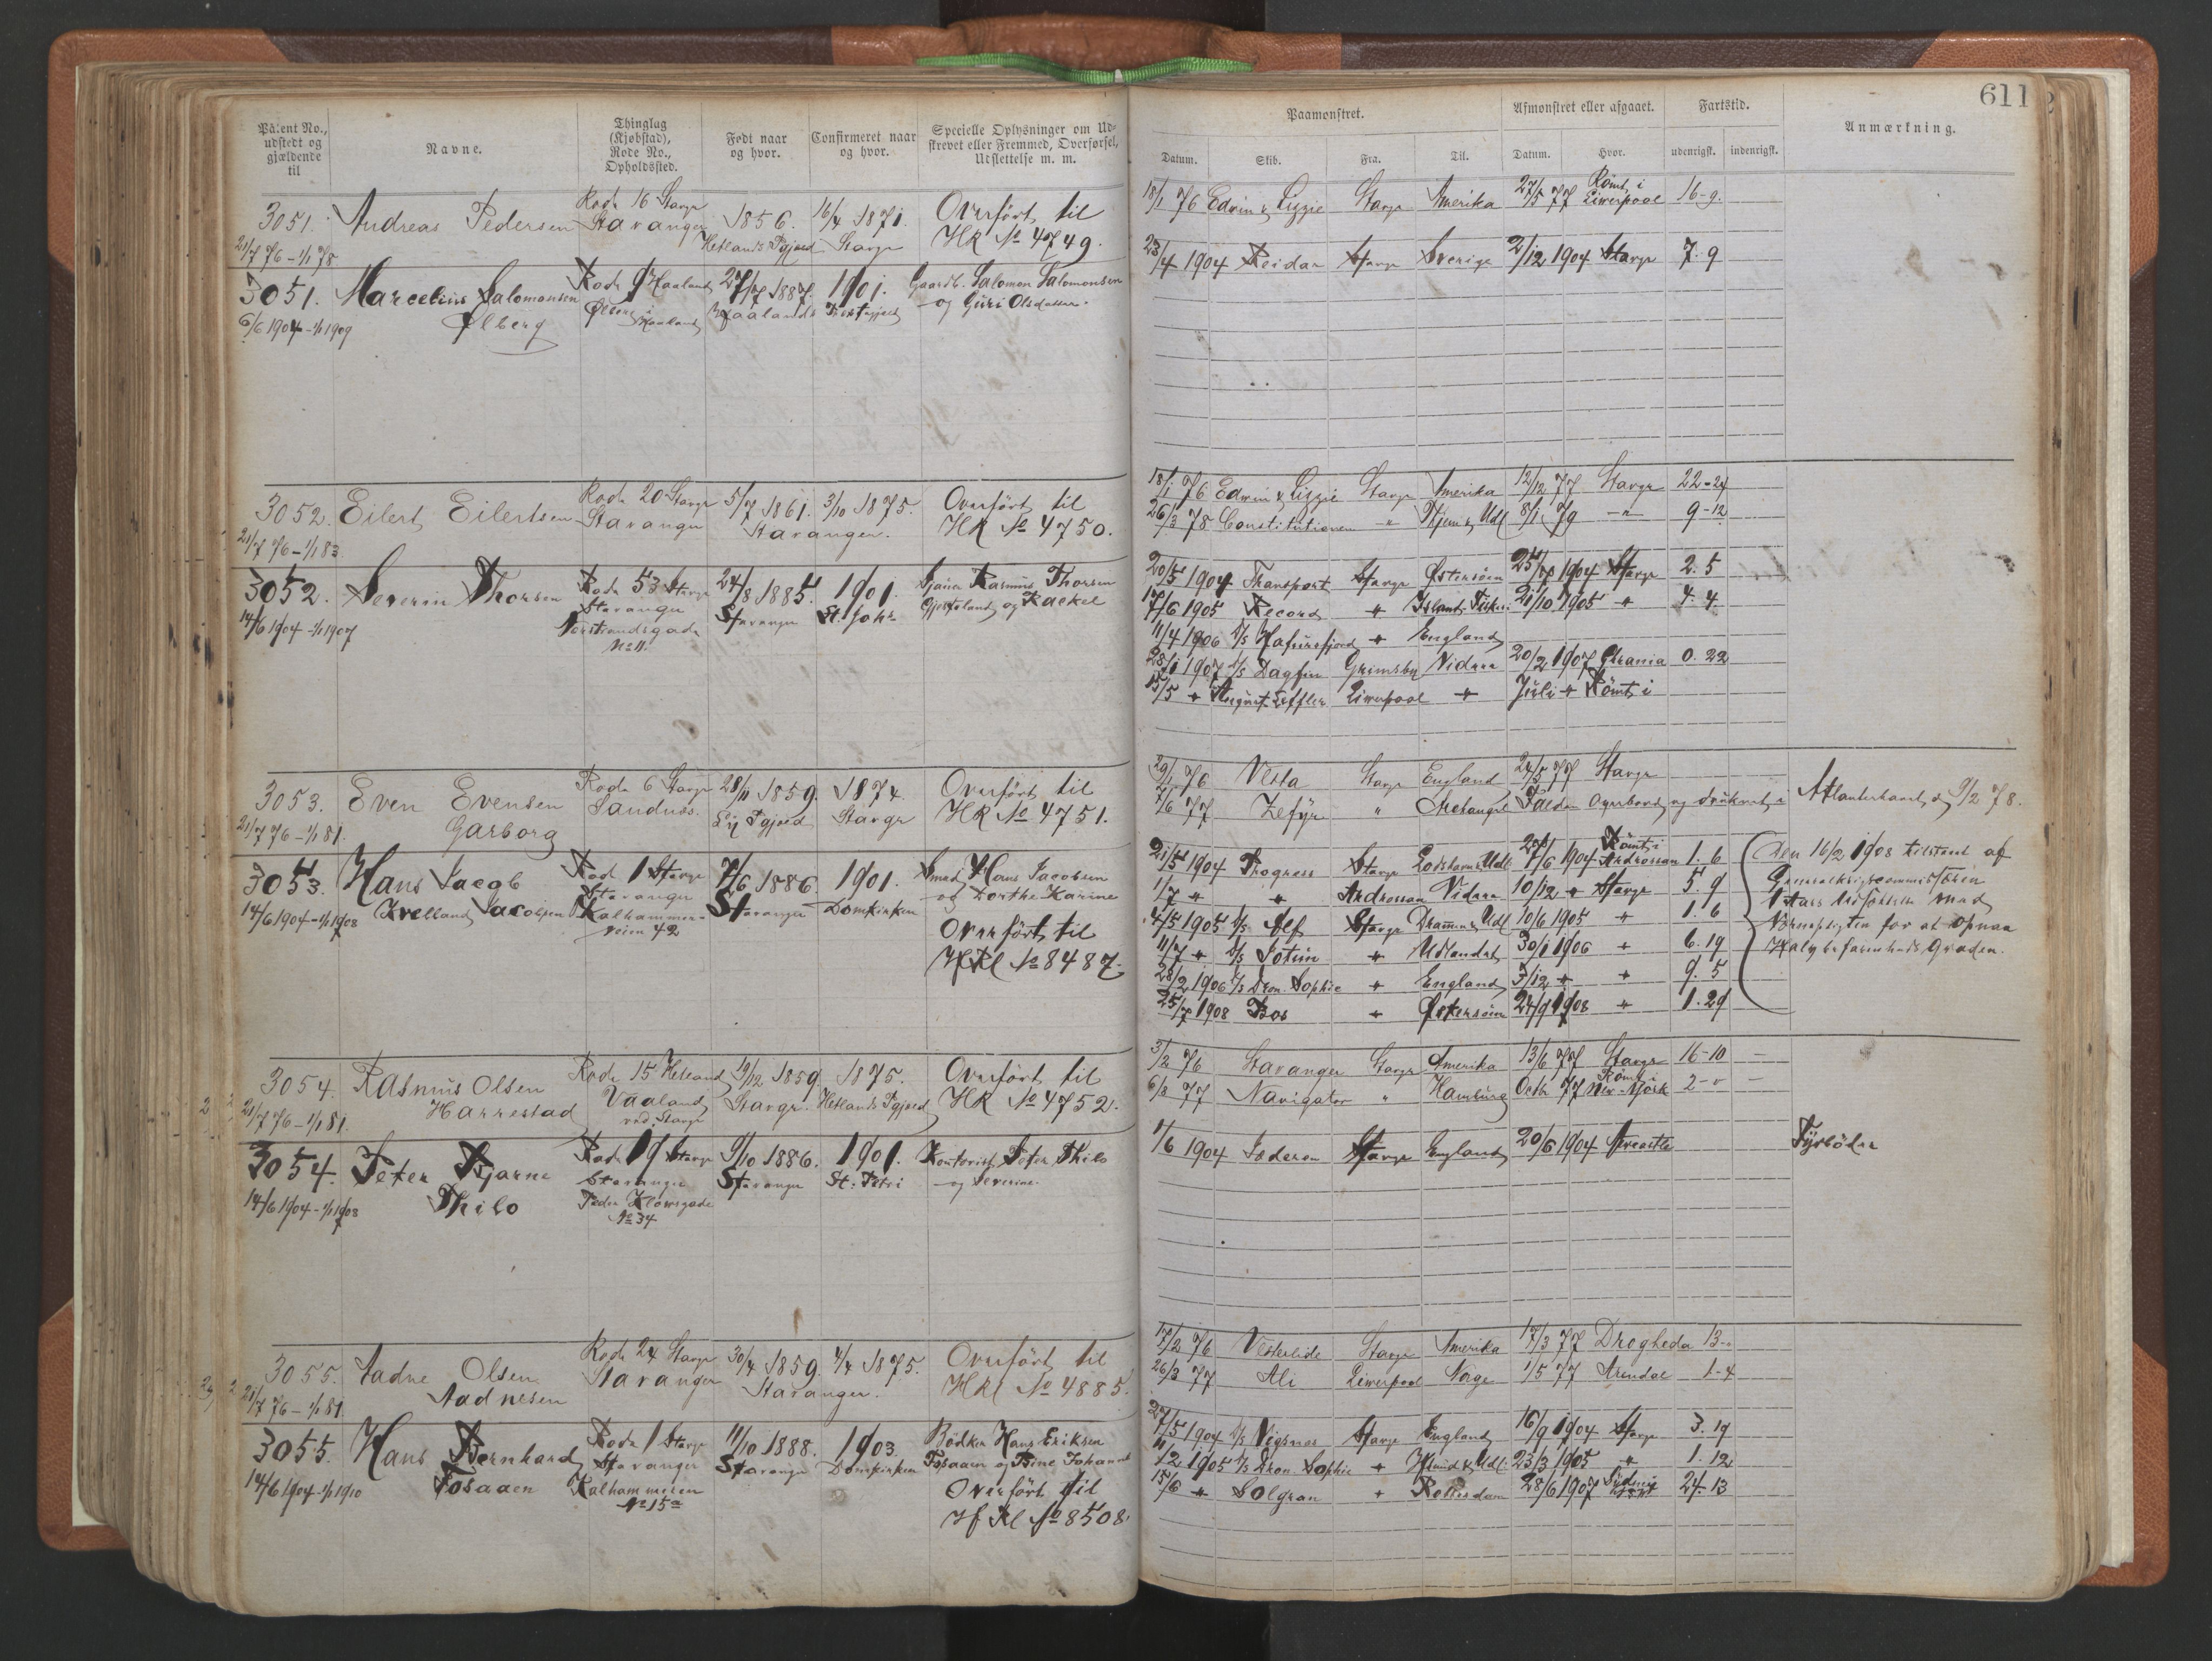 611
Patent No., udstedt og gjældende til
Navne.
Thinglag (Kjøbstad), Rode No., Opholdssted.
Født naar og hvor.
Confirmeret naar og hvor.
Specielle Oplysninger om Udstrevet eller Fremmed, Overførsel, Udslettelse m. m.
Paamonstret.
Afmonstret eller afgaaet.
Fartstid.
Anmærkning.
Datum. Skib. Fra. Til. Datum. Hvor. udenrigsk. indenrigsk.
3051. Andreas Pedersen
21/7 76 - 1/1 78
Rode 16 Stavgr
Stavanger
1856.
Hetlands Pgjæld
16/4 1871.
Stavgr
Overført til
HR No 4749.
18/1 76 Edwin & Lizzie Stavgr Amerika 27/5 77 Rømt i Liverpool 16-9.
3051. Marcelius Salomonsen
Ølberg
6/6 1904 - 1/1 1909
Rode 9 Haaland
Ølberg i Haaland
27/7 1887.
Haaland
1901.
Gaardb. Salomon Salomonsen
og Guri Olsdatter.
23/4 1904 Reidar Stavgr Sverige 2/12 1904 Stavgr 7. 9
3052. Eilert Eilertsen
21/7 76 - 1/1 83
Rode 20 Stavgr
Stavanger
5/7 1861. 3/10 1875.
Stavanger.
Overført til
HR No 4750.
18/1 76 Edwin & Lizzie Stavgr Amerika 12/12 77 Stavgr 22-24
26/3 78 Constitutionen -"- Hjem & Udl 8/1 79 -"- 9-12
3052. Severin Thorsen
14/6 1904 - 1/1 1907
Rode 53 Stavgr
Stavanger
Nordstrandsgade
No 11.
24/8 1885.
Stavanger
1901.
St. Joh:
Rasmus Thorsen
og Rackel
20/5 1904 Transport Stavgr Østersøen 25/7 1904 Stavgr 2. 5
17/6 1905 Record " Islands Fisk. 21/10 1905 " 4. 4.
11/4 1906 D/s Hafursfjord " England
28/1 1907 D/s Dagfin Grimsby Videre 20/2 1907 Chrania 0. 22
15/5 " August Leffler Liverpool " Juli " Rømt i
3053. Even Evensen
Garborg
21/7 76 - 1/1 81.
Rode 6 Stavgr
Sandnæs.
28/11 1859.
Lye Pgjæld
1874.
Stavgr
Overført til
HR No 4751.
29/1 76 Vesta Stavgr England 24/5 77 Stavgr
7/6 77 Zefyr " Archangel Falden Overbord og druknet i Atlanterhavet d 9/2 78.
3053. Hans Jacob
Kvelland Jacobsen
14/6 1904 - 1/1 1908
Rode 1 Stavgr
Stavanger
Kalhammer-
veien 42
7/6 1886.
Stavanger
1901.
Domkirken
Smed Hans Jacobsen
og Dorthe Karine
Overført til
HRl No 8487.
21/5 1904 Progress Stavgr 27/6 1904 Rømt i Ardrossan 1. 6
1/7 " " Ardrossan Videre 10/12 " Stavgr 5. 9
4/5 1905 D/s Alf Stavgr Dramm & Udl 10/6 1905 " 1. 6
11/7 " D/s Jotun " Udlandet 30/1 1906 " 6. 19
28/2 1906 D/s Dron. Sophie " England 3/12 " " 9. 5
25/7 1908 Bos " Østersøen 24/9 1908 " 1. 29
Den 16/2 1908 tilstaaet af
Generalkrigscommissæren
1 Aars Udsættelse med
Værnepligten for at opnaa
Halvbefarenheds Graden.
3054. Rasmus Olsen
Harrestad
21/7 76 - 1/1 81.
Rode 15 Hetland
Vaaland
ved Stavgr
19/12 1859.
Stavgr.
1875.
Hetlands Pgjæld
Overført til
HR No 4752.
3/2 76 Stavanger Stavgr Amerika 13/6 77 Stavgr 16-10 -
6/8 77 Navigator " Hamburg Octb 77 Rømt i New-York 2-" -
3054. Peter Bjarne
Thilo
14/6 1904 - 1/1 1908
Rode 19 Stavgr
Stavanger
Peder Klowsgade
No 34
9/10 1886.
Stavanger
1901.
St: Petri
Kontorist Peter Thilo
og Severine.
1/6 1904 Jæderen Stavgr England 20/6 1904 Newcastle
Fyrbøder
3055. Aadne Olsen
Aadnesen
21/7 76 - 1/1 81
Rode 24 Stavgr
Stavanger
30/4 1859. 4/4 1875.
Stavanger.
Overført til
HRl No 4885.
17/2 76 Vesterlide Stavgr Amerika 17/3 77 Drogheda 13-"
26/3 77 Ali Liverpool Norge 1/5 77 Arendal 1-4
3055. Hans Bernhard
Fosaaen
14/6 1904 - 1/1 1910
Rode 1 Stavgr
Stavanger
Kalhammeren
No 15a
11/10 1888.
Stavanger
1903.
Domkirken
Bødker Hans Eriksen
Fosaaen og Trine Johanne
Overført til
Hf Rl No 8508.
27/5 1904 D/s Vigsnes Stavgr England 16/9 1904 Stavgr 3. 19
11/2 1905 D/s Dron. Sophie " Hsund & Udl. 23/3 1905 " 1. 12
15/6 " Solgran " Rotterdam 28/6 1907 Sydney 24. 13